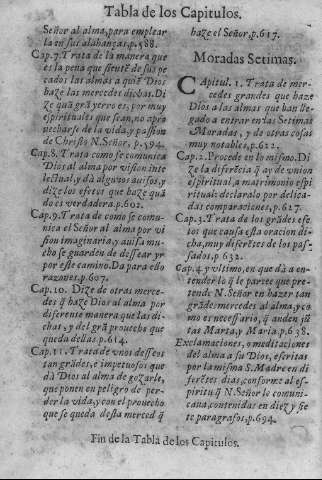 Tabla de los Capitulos.
Señor al alma, para emplear
la en sus alabanças, p.588.
Cap.7. Trata de la manera que
es la pena que siẽtẽ de sus pe
cados las almas a quiẽ Dios
haze las mercedes dichas. Di
ze quã grã yerro es, por muy
espirituales que sean, no apro
uecharse de la vida, y passion
de Christo N. Señor, p. 594.
Cap.8. Trata como se comunica
Dios al alma por vision inte
lectual, y dà algunos auisos, y
dize los efetos que haze quã
do es verdadera. p.602.
Cap.9. Trata de como se comu
nica el Señor al alma por vi
sion imaginaria, y auisa mu
cho se guarden de dessear yr
por este camino. Da para ello
razones. p.607.
Cap.10. Dize de otras merce
des q̃ haze Dios al alma por
diferente manera que las di
chas, y del grã prouecho que
queda dellas p.614.
Cap.11. Trata de vnos desseos
tan grãdes, e impetuosos que
dà Dios al alma de gozarle,
que ponen en peligro de per-
der la vida, y con el prouecho
que se queda desta merced q̃
haze el Señor, p.617.
Moradas Setimas.
Capitul. 1. Trata de mer-
cedes grandes que haze
Dios a las almas que han lle-
gado a entrar en las Setimas
Moradas, y de otras cosas
muy notables, p.622.
Cap.2. Procede en lo mismo. Di
ze la diferẽcia q̃ ay de vnion
espiritual, a matrimonio espi
ritual: declaralo por delica-
das comparaciones, p.627.
Cap.3. Trata de los grãdes efe
tos que causa esta oracion di-
cha, muy diferẽtes de los pas-
sados, p.632.
Cap.4. y vltimo, en que dà a en-
tender lo q̃ le parece que pre-
tende N. Señor en hazer tan
grãdes mercedes al alma, y co
mo es necessario, q̃ anden jũ
tas Marta, y Maria p.638.
Exclamaciones, o meditaciones
del alma a su Dios, escritas
por la misma S. Madre en di
ferẽtes dias, conforme al es-
piritu q̃ N. Señor le comuni-
caua, contenidas en diez y sie
te paragrafos, p.694.
Fin de la Tabla de los Capitulos.